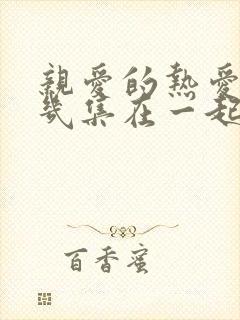 親愛的熱愛
幾集在一起
百香蜜